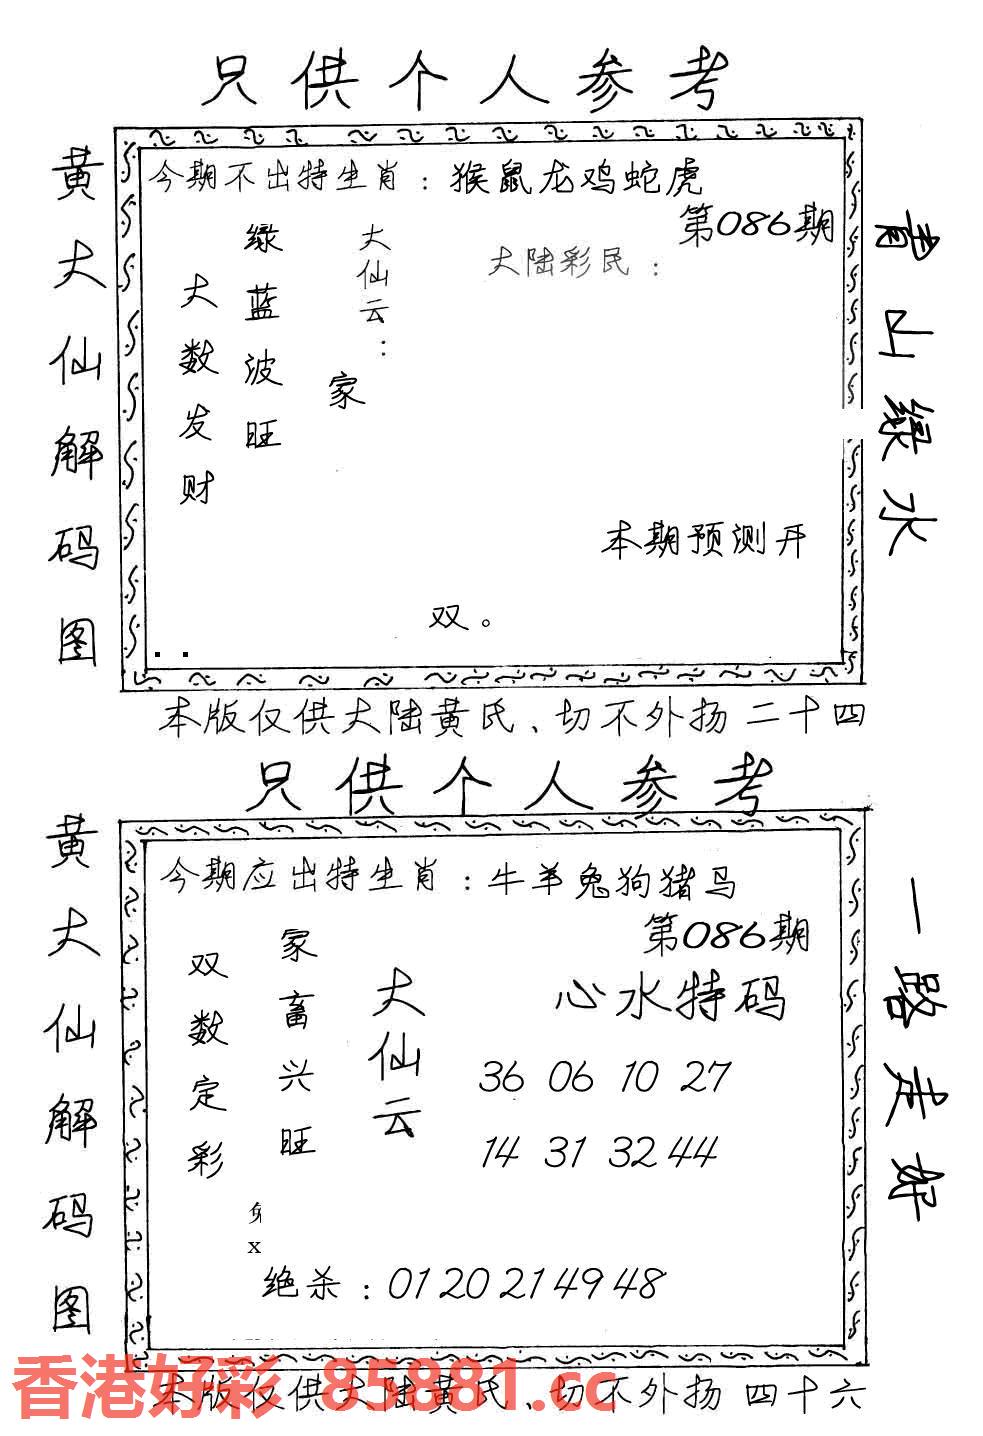 只供个人参考
黄大仙解码图
今期不出特生肖：猴鼠龙鸡蛇虎
第086期
绿蓝波旺
大数发财
大仙云：
家
大陆彩民：
本期预测开
双。
青山绿水
本版仅供大陆黄氏、切不外扬 二十四
只供个人参考
黄大仙解码图
今期应出特生肖：牛羊兔狗猪马
第086期
家畜兴旺
双数定彩
大仙云
心水特码
36 06 10 27
14 31 32 44
x
绝杀：01 20 21 49 48
一路走好
香港好彩 85881.cc
本版仅供大陆黄氏、切不外扬 四十六